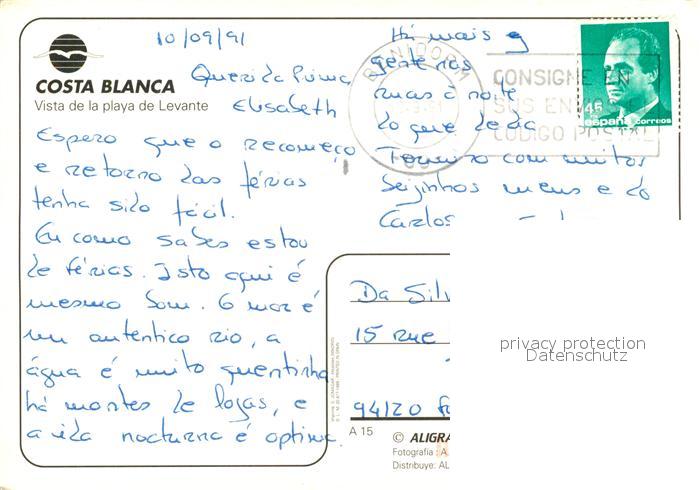 10/09/91
COSTA BLANCA
Vista de la playa de Levante
Querida Prima
Elisabeth
Espero que o recomeço
e retorno das férias
tenha sido fácil.
Eu como sabes estou
de férias. Isto aqui é
mesmo bom. O mar é
um autentico rio, a
água é muito quentinha
há montes de lojas, e
a vida nocturna é optima.
Há mais
gente nas
ruas à noite
do que de dia
Termino com muitos
beijinhos meus e do
Carlos
BENIDORM
CONSIGNE EN
SUS ENVIOS EL
CODIGO POSTAL
45
españa correos
Da Silv
15 rue
94120
A 15
© ALIGRA
Fotografía: A.
Distribuye: AL
privacy protection
Datenschutz